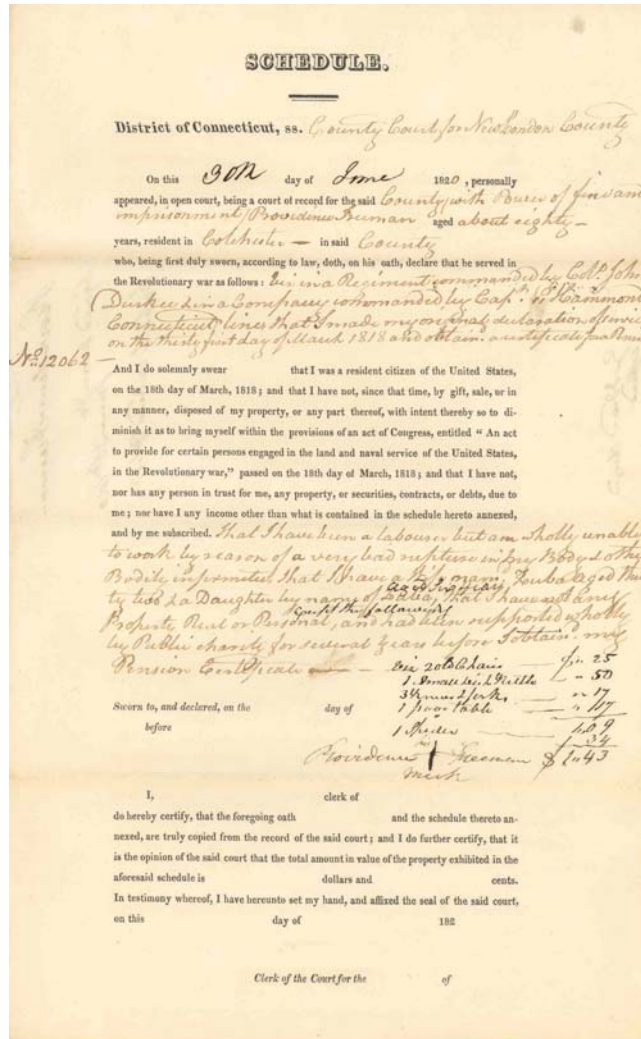 SCHEDULE.
District of Connecticut, ss. County Court for New London County
On this 30th day of June 1820, personally
appeared, in open court, being a court of record for the said County, with Power of fine and
imprisonment, Providence Freeman aged about eighty –
years, resident in Colchester – in said County
who, being first duly sworn, according to law, doth, on his oath, declare that he served in
the Revolutionary war as follows: viz in a Regiment commanded by Colo. John
Durkee & in a Company commanded by Capt. Hammond
Connecticut lines that I made my original declaration of
on the thirty first day of March 1818 and obtain. a certificate for a
No 12062 –
And I do solemnly swear that I was a resident citizen of the United States,
on the 18th day of March, 1818; and that I have not, since that time, by gift, sale, or in
any manner, disposed of my property, or any part thereof, with intent thereby so to di-
minish it as to bring myself within the provisions of an act of Congress, entitled “An act
to provide for certain persons engaged in the land and naval service of the United States,
in the Revolutionary war,” passed on the 18th day of March, 1818; and that I have not,
nor has any person in trust for me, any property, or securities, contracts, or debts, due to
me; nor have I any income other than what is contained in the schedule hereto annexed,
and by me subscribed. That I have been a labourer but am wholly unable
to work by reason of a very bad rupture in my Body & other
Bodily infirmities, That I have a Wife nam. Zuba aged
ty two & a Daughter by name of that I have not any
Property Real or Personal, except the following and had been supported wholly
by Public charity for several Years before I obtain. my
Pension Certificate – viz 2 old Chairs 25
1 Small Dish Kettle 50
3 knives & forks 17
Sworn to, and declared, on the day of 1 poor table 17
before 1 Spider
34
Providence Freeman $ 1.43
mark
I, clerk of
do hereby certify, that the foregoing oath and the schedule thereto an-
nexed, are truly copied from the record of the said court; and I do further certify, that it
is the opinion of the said court that the total amount in value of the property exhibited in the
aforesaid schedule is dollars and cents.
In testimony whereof, I have hereunto set my hand, and affixed the seal of the said court,
on this day of 182
Clerk of the Court for the of